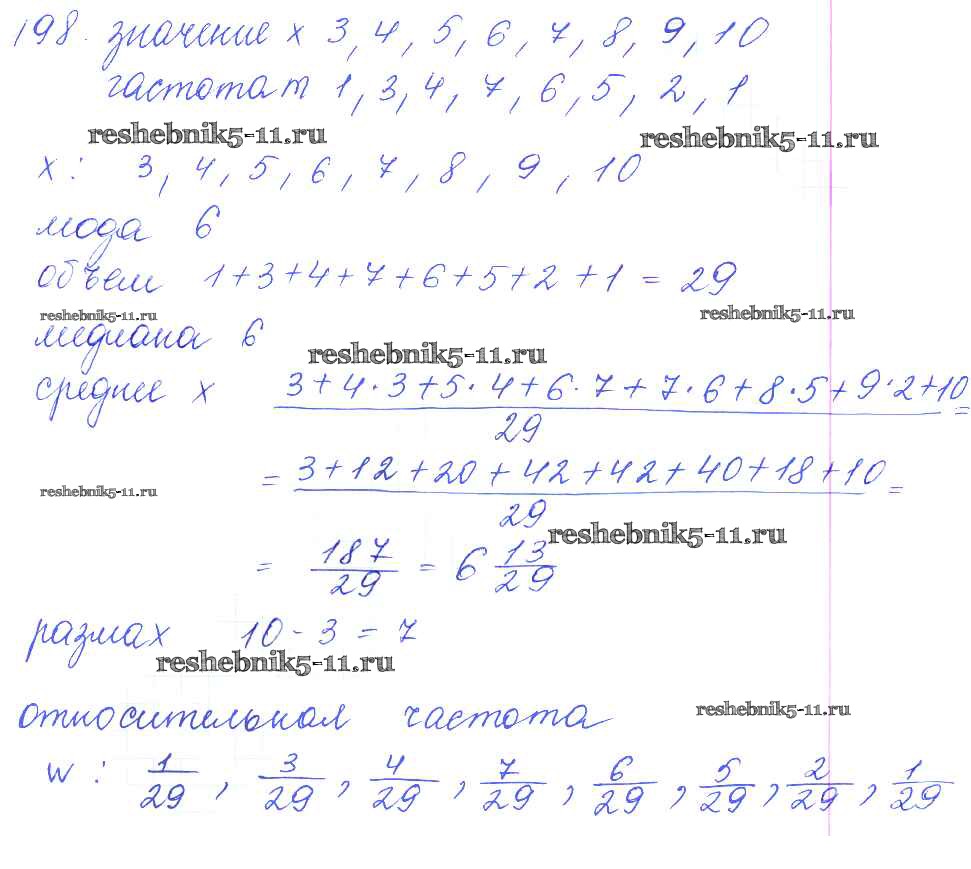 198. значение x 3, 4, 5, 6, 7, 8, 9, 10
частота m 1, 3, 4, 7, 6, 5, 2, 1
reshebnik5-11.ru reshebnik5-11.ru
x: 3, 4, 5, 6, 7, 8, 9, 10
мода 6
объем 1+3+4+7+6+5+2+1 = 29
reshebnik5-11.ru reshebnik5-11.ru
медиана 6
reshebnik5-11.ru
среднее x \frac{3+4·3+5·4+6·7+7·6+8·5+9·2+10}{29} =
= \frac{3+12+20+42+42+40+18+10}{29} =
reshebnik5-11.ru
reshebnik5-11.ru
= \frac{187}{29} = 6 \frac{13}{29}
размах 10-3 = 7
reshebnik5-11.ru
относительная частота
reshebnik5-11.ru
w: \frac{1}{29}, \frac{3}{29}, \frac{4}{29}, \frac{7}{29}, \frac{6}{29}, \frac{5}{29}, \frac{2}{29}, \frac{1}{29}